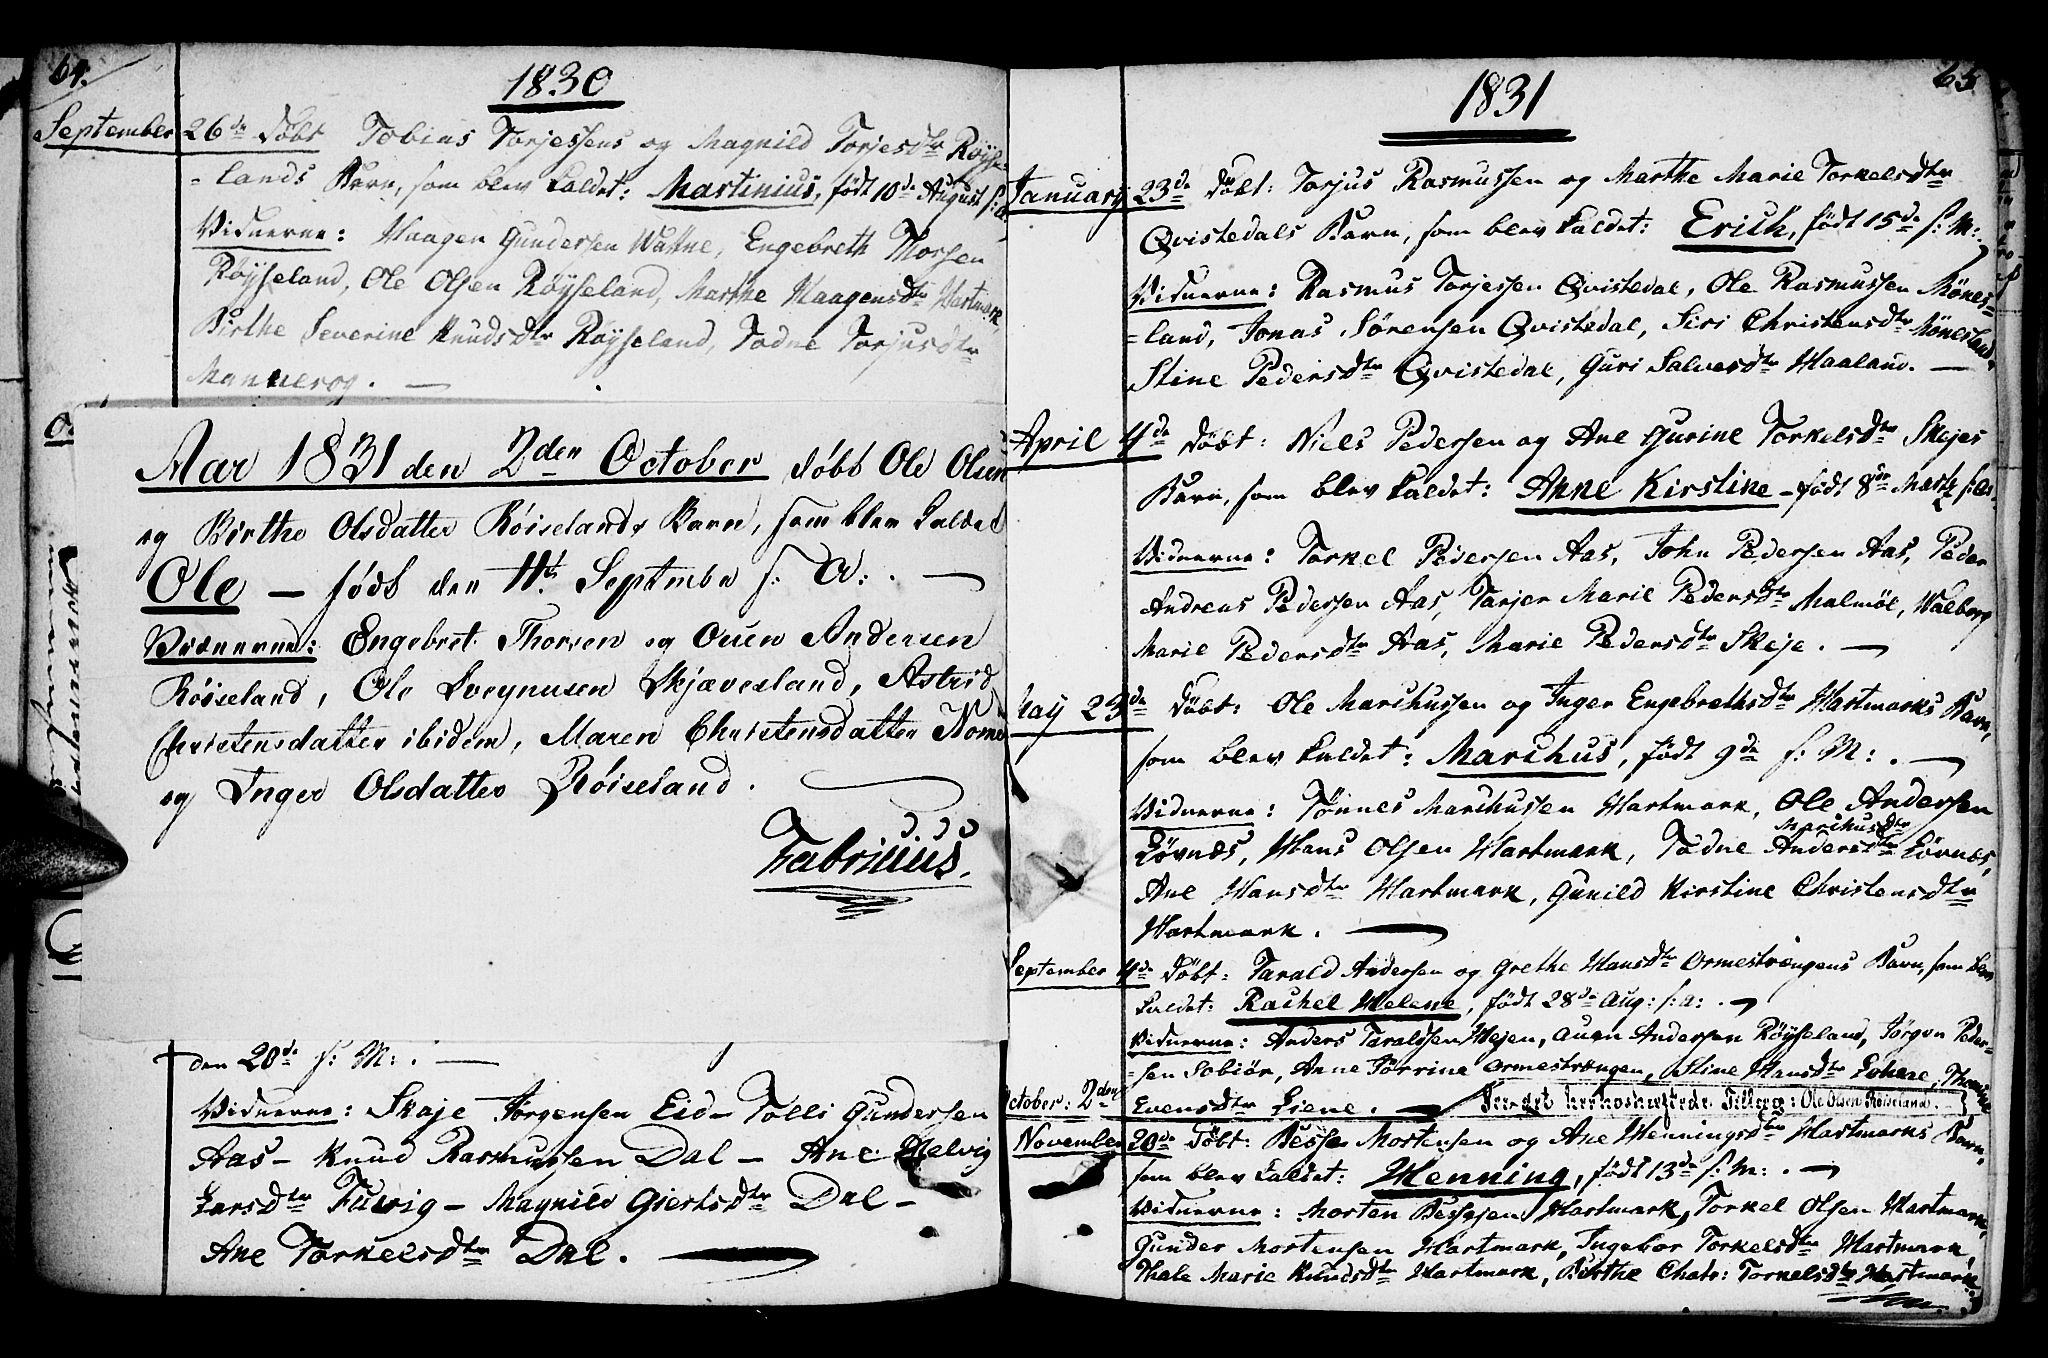 64.
1830
September 26de Döbt Tobias Torjessens og Magnild Torjesdtr Röyse-
-lands Barn, som blev kaldet: Martinius, födt 10de August s: a:
Vidnerne: Haagen Gundersen Watne, Engebreth Thorsen
Röyseland, Ole Olsen Röyseland, Marthe Haagensdtr Hartmark,
Birthe Severine Knudsdtr Röyseland, Todne Torjusdtr
Mannerog. —
Aar 1831 den 2den October døbt Ole Olsen
og Birthe Olsdatter Röiselands Barn, som blev kaldet
Ole — født den 11te September s: A: . —
Vidnerne: Engebret Thorsen og Ouen Andersen
Röiseland, Ole Svegnusen Skjævesland, Astrid
Christensdatter ibidem, Maren Christensdatter Nome
og Inger Olsdatter Röiseland.
Fabricius.
den 20de s: M: . —
Vidnerne: Skaje Jörgensen Eid — Tolli Gundersen
Aas — Knud Rasmussen Dal — Ane Helvig
Larsdtr Fuvig — Magnild Giertsdtr Dal —
Ane Torkelsdtr Dal. —
65
1831
January 23de Döbt: Torjus Rasmussen og Marthe Marie Torkelsdtr
Qvistedals Barn, som blev kaldet: Erich, födt 15de s: M: .
Vidnerne: Rasmus Torjessen Qvistedal, Ole Rasmussen Mönes-
-land, Jonas Sörensen Qvistedal, Siri Christensdtr Mönesland,
Stine Pedersdtr Qvistedal, Guri Salvesdtr Haaland. —
April 4de Döbt: Niels Pedersen og Ane Gurine Torkelsdtr Skejes
Barn, som blev kaldet: Anne Kirstine — födt 8de Martz s: a:
Vidnerne: Torkel Pedersen Aas, John Pedersen Aas, Peder
Andreas Pedersen Aas, Tarjer Marie Pedersdtr Malmöe, Walborg
Marie Pedersdtr Aas, Marie Pedersdtr Skeje. —
May 23de Döbt: Ole Marchussen og Inger Engebrethsdtr Hartmarks Barn,
som blev kaldet: Marchus, födt 9de s: M: . —
Vidnerne: Tönnes Marchussen Hartmark, Ole Andersen
Lövnæs, Hans Olsen Hartmark, Todne Marchusdtr Andersdtr Lövnæs,
Ane Hansdtr Hartmark, Gunild Kirstine Christensdtr
Hartmark. —
September 4de Döbt: Tarald Andersen og Grethe Hansdtr Ormestrængens Barn, som blev
kaldet: Rachel Helene, födt 28de Aug: s: a: . —
Vidnerne: Anders Taraldsen Hejen, Auen Andersen Röyseland, Jörgen Peder-
-sen Sobiör, Anne Torrine Ormestrængen, Stine Hansdtr Lohne,
Evensdtr Liene. —
October: 2den
Ole Olsen Röiseland.
November 20de Döbt: Besse Mortensen og Ane Henningsdtr Hartmarks Barn,
som blev kaldet: Henning, födt 13de s: M: . —
Vidnerne: Morten Bessesen Hartmark, Torkel Olsen Hartmark,
Gunder Mortensen Hartmark, Ingebor Torkelsdtr Hartmark,
Thale Marie Knudsdtr Hartmark, Birthe Chatr: Torkelsdtr Hartmark.